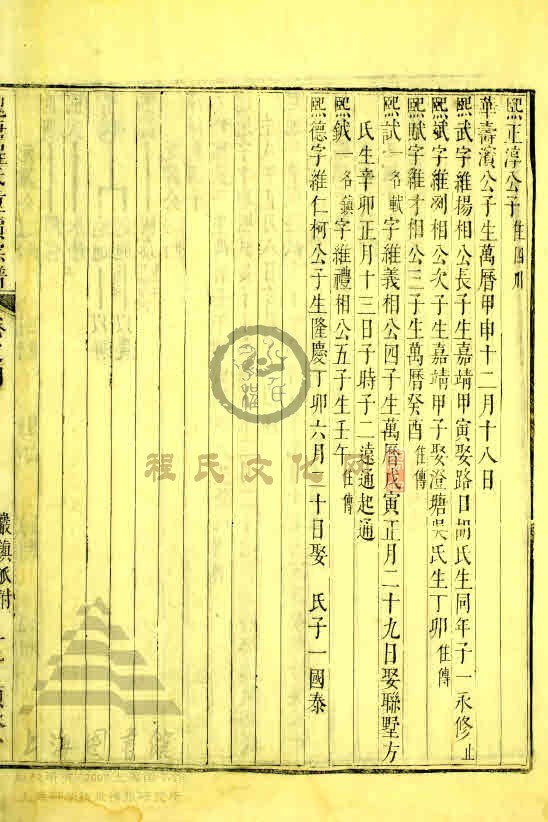 熙正淳公子住四川
華壽濱公子生萬曆甲申十二月十八日
熙武字維揚相公長子生嘉靖甲寅娶路口胡氏生同年子一永修止
熙斌字維冽相公次子生嘉靖甲子娶澄塘吳氏生丁卯隹傳
熙賦字維才相公三子生萬曆癸酉隹傳
熙試一名軾字維義相公四子生萬曆戊寅正月二十九日娶聯墅方
氏生辛卯正月十三日子時子二遠通起通
熙鉞一名鎮字維禮相公五子生壬午隹傳
熙德字維仁柯公子生隆慶丁卯六月二十日娶 氏子一國泰
巖鎮派附
程氏文化网
上海图书馆